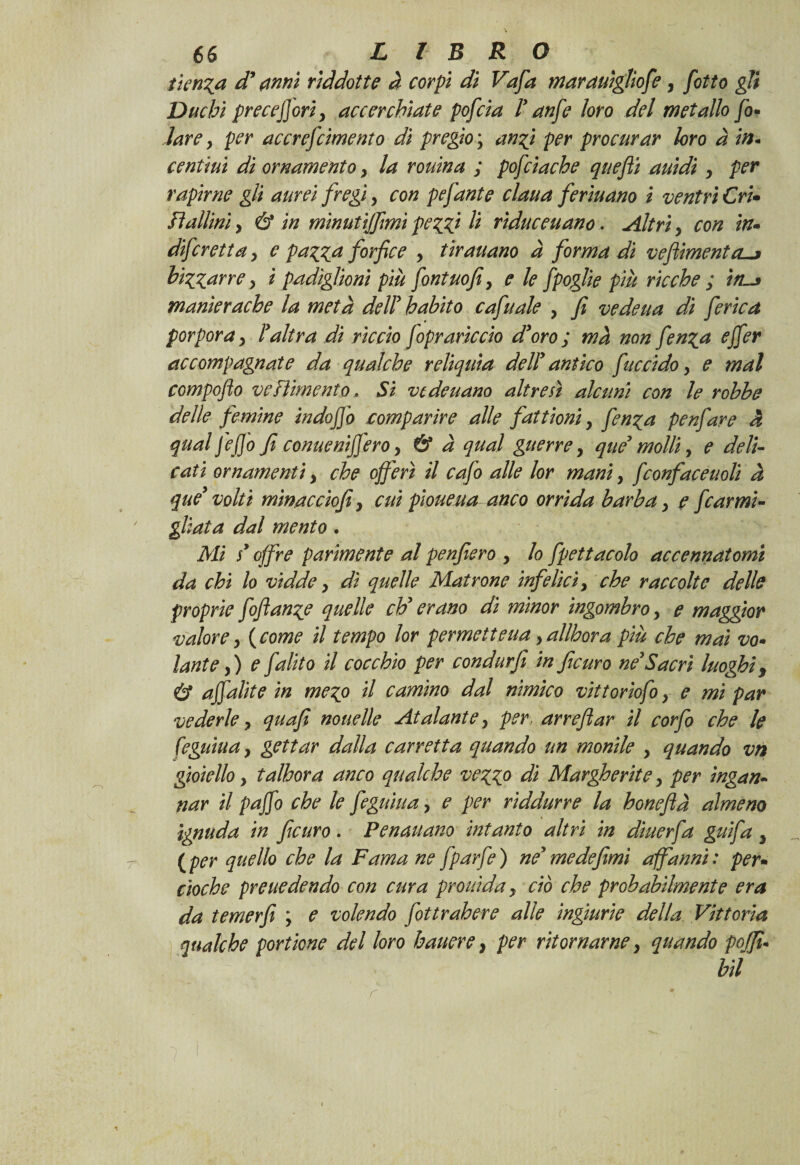 66 LIBRO
tienza d' anni riddotte à corpi di Vasa marauigliose, sotto gli
Duchi precessori, accerchiate poscia l' anse loro del metallo so-
lare, per accrescimento di pregio; anzi per procurar loro à in-
centiui di ornamento, la rouina; posciache questi auidi, per
rapirne gli aurei fregi, con pesante claua feriuano i ventri Cri-
stallini, & in minutissimi pezzi li riduceuano. Altri, con in-
discretta, e pazza forfice, tirauano à forma di vestimenta
bizzarre, i padiglioni più sontuosi, e le spoglie più ricche; in
manierache la metà dell' habito casuale, si vedeua di serica
porpora, l'altra di riccio soprariccio d'oro; mà non senza esser
accompagnate da qualche reliquia dell' antico succido, e mal
composto vestimento. Si vedeuano altresì alcuni con le robbe
delle femine indosso comparire alle fattioni, senza pensare à
qual sesso si conuenissero, & à qual guerre, que' molli, e deli-
cati ornamenti, che offerì il caso alle lor mani, sconfaceuoli à
que' volti minacciosi, cui pioueua anco orrida barba, e scarmi-
gliata dal mento.
Mi s' offre parimente al pensiero, lo spettacolo accennatomi
da chi lo vidde, di quelle Matrone infelici, che raccolte delle
proprie sostanze quelle ch' erano di minor ingombro, e maggior
valore, (come il tempo lor permetteua, allhora più che mai vo-
lante,) e salito il cocchio per condursi in sicuro ne' Sacri luoghi,
& assalite in mezo il camino dal nimico vittorioso, e mi par
vederle, quasi nouelle Atalante, per arrestar il corso che le
seguiua, gettar dalla carretta quando un monile, quando vn
gioiello, talhora anco qualche vezzo di Margherite, per ingan-
nar il passo che le seguiua, e per riddurre la honestà almeno
ignuda in sicuro. Penauano intanto altri in diuersa guisa,
(per quello che la Fama ne sparse) ne' medesimi affanni: per-
cioche preuedendo con cura prouida, ciò che probabilmente era
da temersi; e volendo sottrahere alle ingiurie della Vittoria
qualche portione del loro hauere, per ritornarne, quando possi-
bil